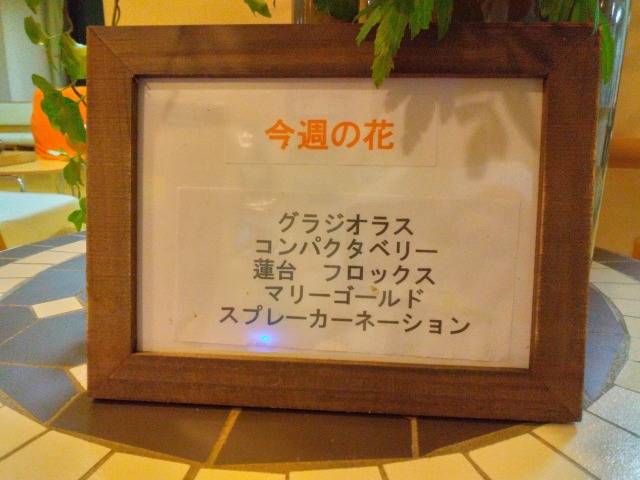 今週の花
グラジオラス
コンパクタベリー
蓮台　フロックス
マリーゴールド
スプレーカーネーション